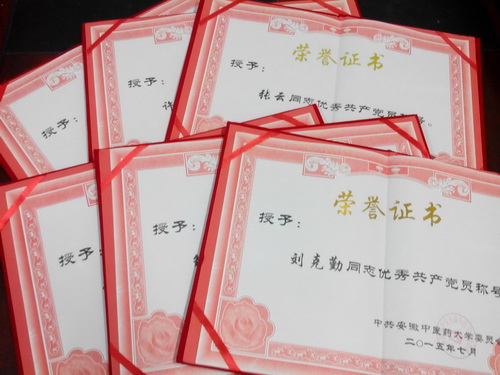 荣誉证书
授予：
张云同志优秀共产党员
授予：
许
授予：
荣誉证书
授予：
刘克勤同志优秀共产党员称号
中共安徽中医药大学委员会
二〇一五年七月
授予：
授予：